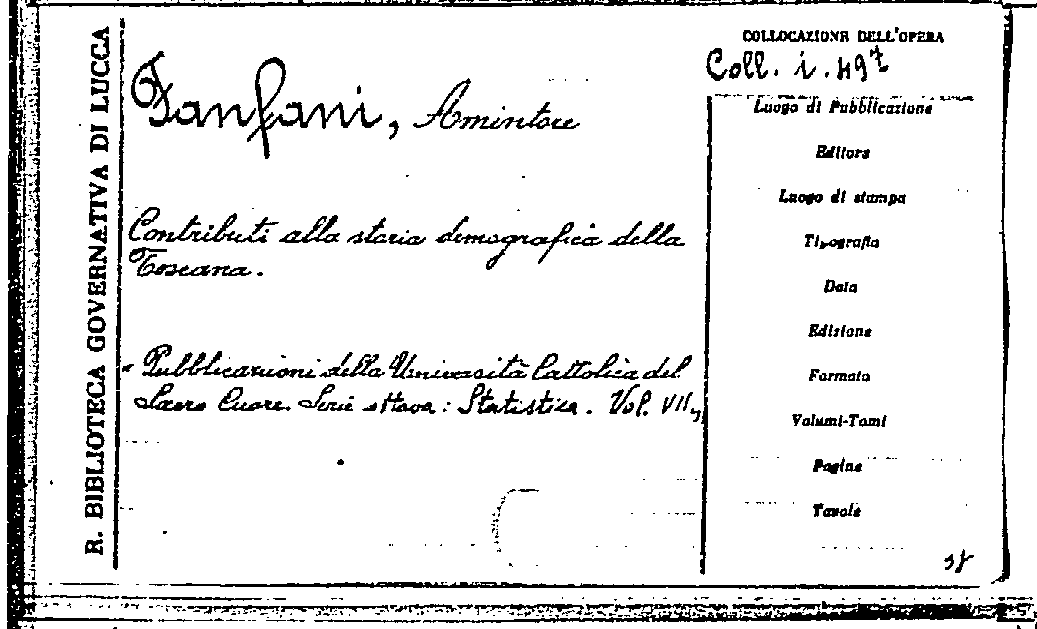 R. BIBLIOTECA GOVERNATIVA DI LUCCA
Fanfani, Amintore
Contributi alla storia demografica della
Toscana.
"Pubblicazioni della Università Cattolica del
Sacro Cuore. Serie ottava: Statistica. Vol. VII"
COLLOCAZIONE DELL'OPERA
Coll. i. 497
Luogo di Pubblicazione
Editore
Luogo di stampa
Tipografia
Data
Edizione
Formato
Volumi-Tomi
Pagine
Tavole